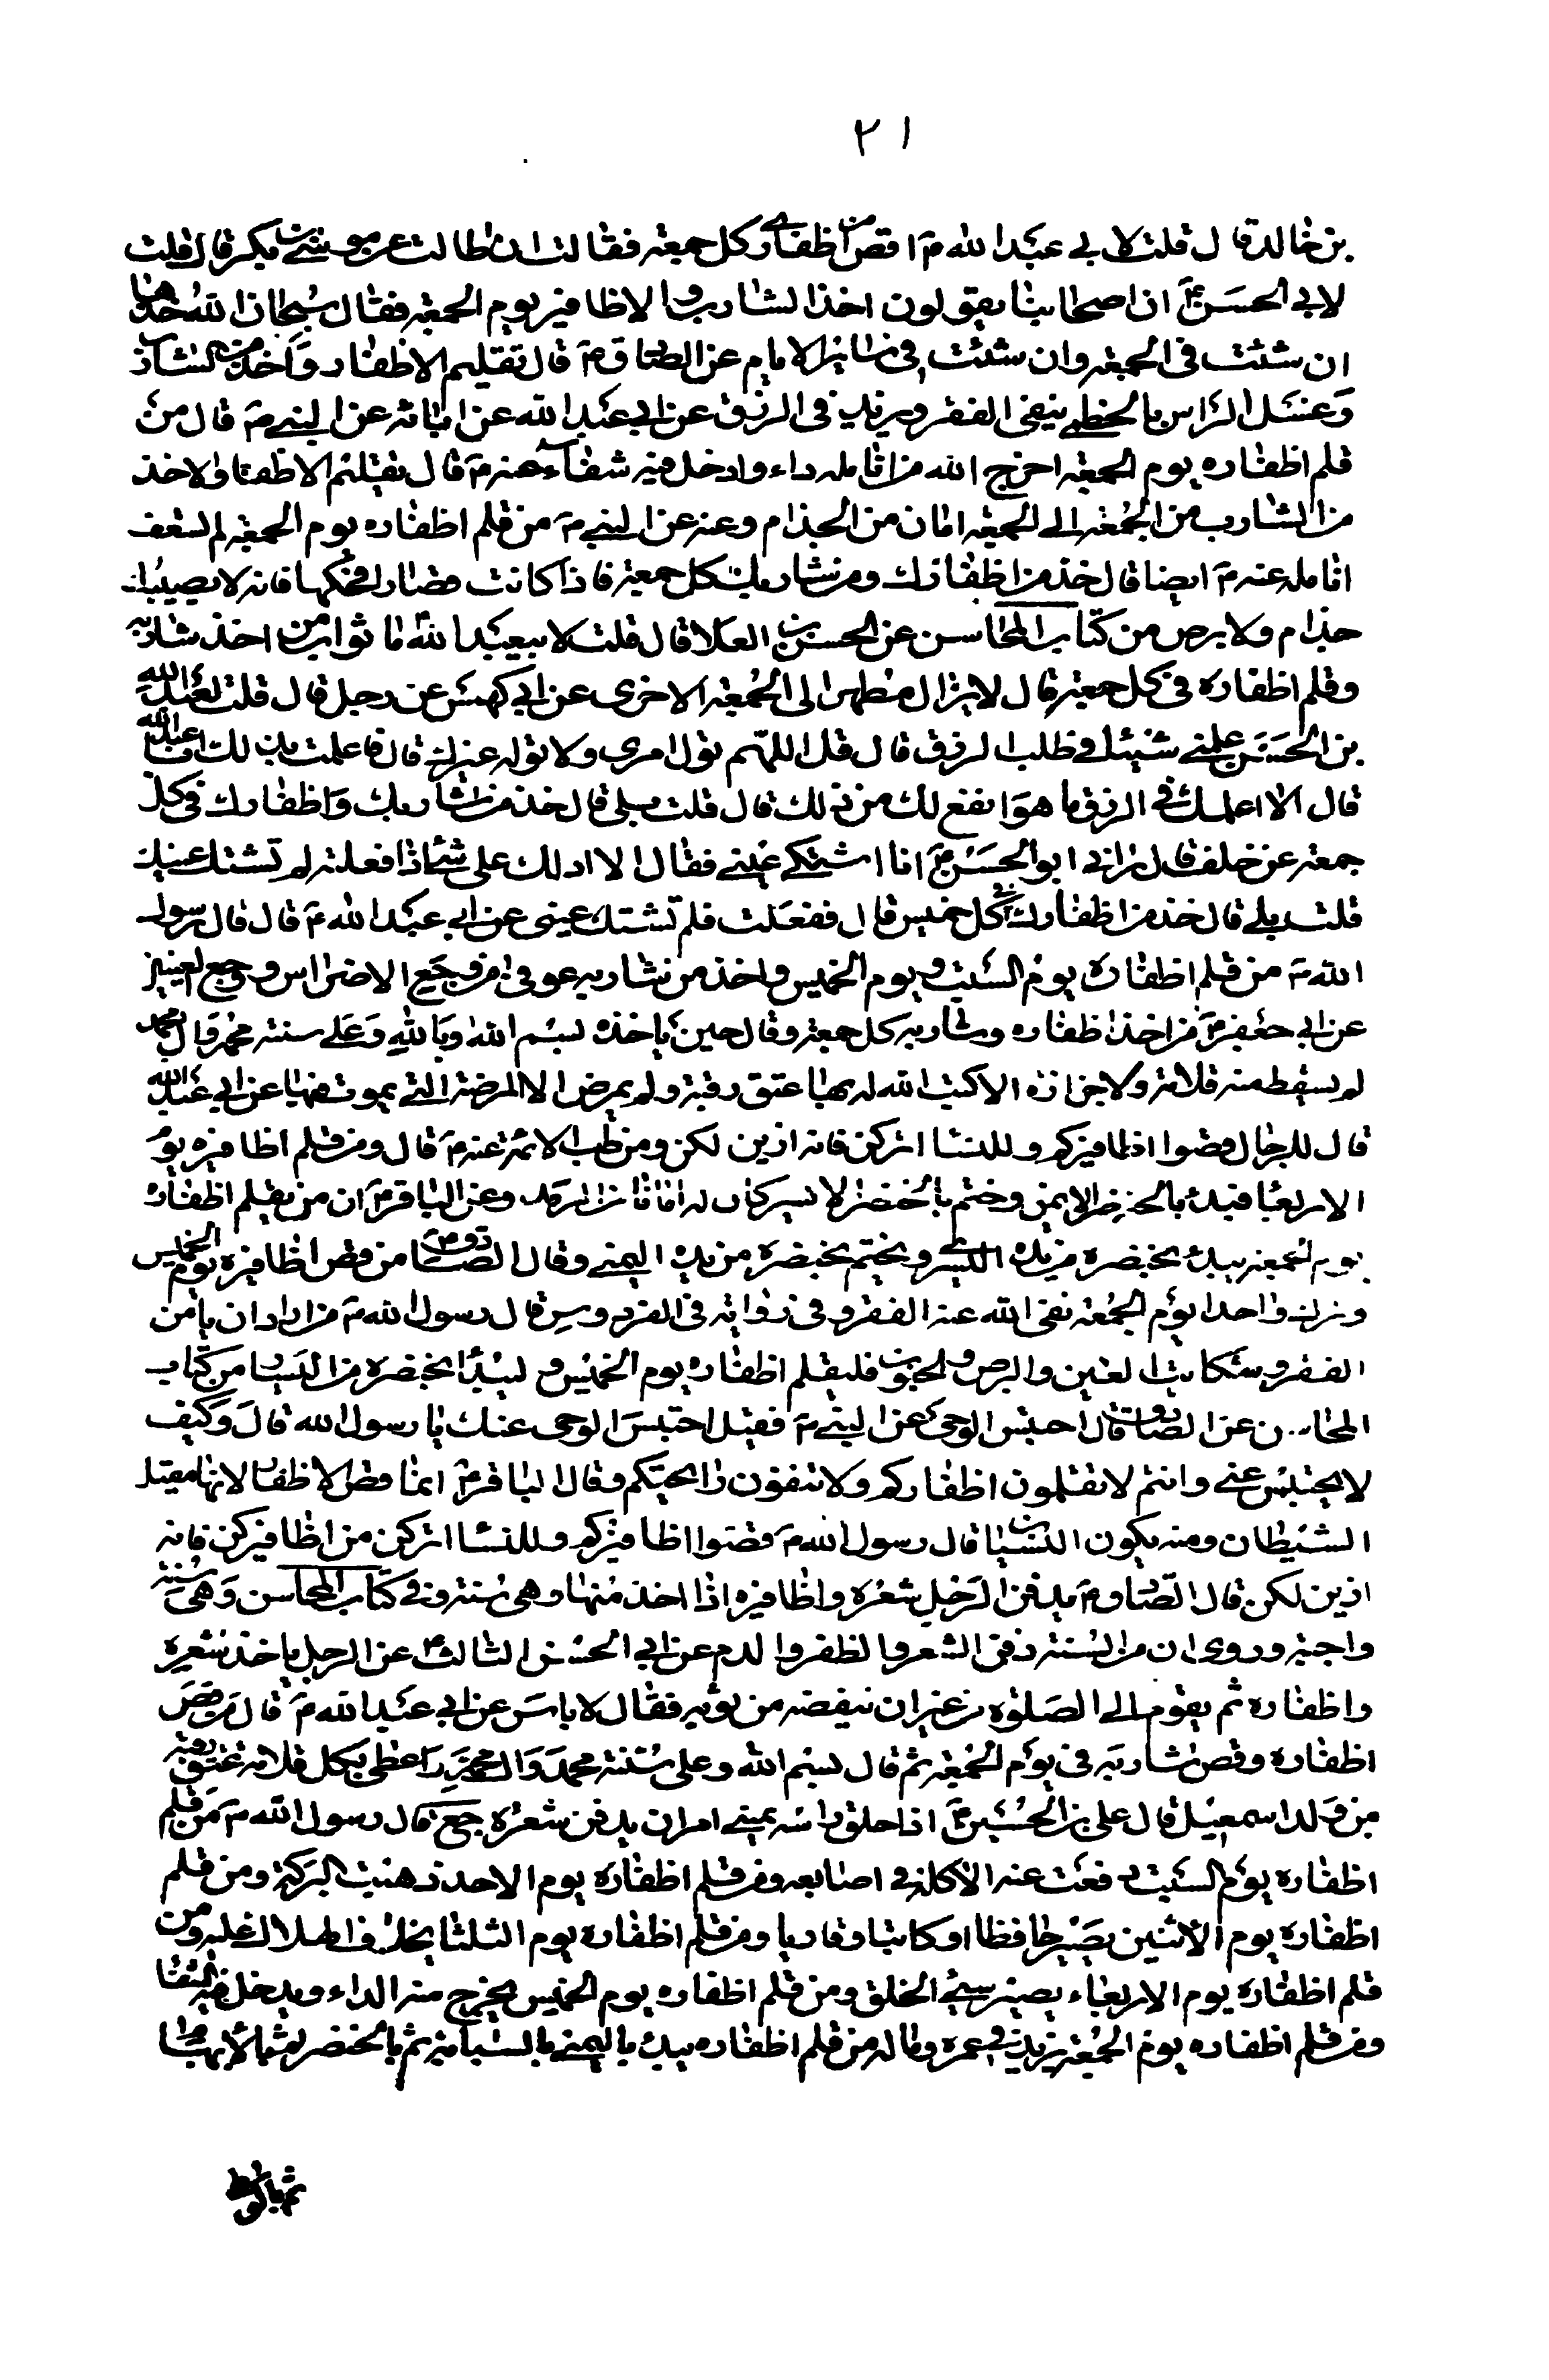 ٢١
بن خالد قال قلت لابي عبدالله ع اقص من اظفارى كل جمعة فقالت ان طالت عن موسى بن بكر قال قلت
لابي الحسن ع ان اصحابنا يقولون اخذ الشارب و الاظافير يوم الجمعة فقال سبحان الله خذها
ان شئت في الجمعة وان شئت في سائر الايام عن الصادق ع قال تقليم الاظفار و اخذ من الشارب
و غسل الراس بالخطمى ينفى الفقر و يزيد في الرزق عن ابي عبدالله عن ابائه عن النبي ص قال من
قلم اظفاره يوم الجمعة اخرج الله من انامله داء و ادخل فيه شفاء عنه ع قال تقليم الاظفار والاخذ
من الشارب من الجمعة الى الجمعة امان من الجذام وعنه عن النبي ص من قلم اظفاره يوم الجمعة لم تسعف
انامله عنه ع ايضا قال خذ من اظفارك ومن شاربك كل جمعة فاذا كانت قصارا فحكها فانه لا يصيبك
جذام ولا برص من كتاب المحاسن عن الحسن بن العلا قال قلت لابيعبدالله ما ثواب من اخذ شاربه
وقلم اظفاره في كل جمعة قال لا يزال مطهرا الى الجمعة الاخرى عن ابي كهمش عن رجل قال قلت لعبدالله
بن الحسن علمنى شيئا في طلب الرزق قال قل اللهم تول امرى ولا توله غيرك قال فاعلمت بذلك اباعبدالله
قال الا اعلمك في الرزق ما هو انفع لك من ذلك قال قلت بلى قال خذ من شاربك و اظفارك في كل
جمعة عن خلف قال رانى ابو الحسن ع انا اشتكى عينى فقال الا ادلك على شئ اذا فعلته لم تشتك عينك
قلت بلى قال خذ من اظفارك في كل خميس قال ففعلت فلم تشتك عينى عن ابي عبدالله ع قال قال رسول
الله ص من قلم اظفاره يوم السبت و يوم الخميس واخذ من شاربه عوفى من وجع الاضراس و وجع العينين
عن ابي جعفر ع من اخذ اظفاره وشاربه كل جمعة وقال حين ياخذه بسم الله وبالله وعلى سنة محمد وال محمد
لم يسقط منه قلامة ولا جزازة الا كتب الله له بها عتق رقبة ولم يمرض الا المرضة التى يموت فيها عن ابي عبدالله
قال للرجال قصوا اظافيركم و للنسا اتركن فانه ازين لكن ومن طب الائمة عنه ع قال ومن قلم اظافيره يوم
الاربعا فبدء بالخنصر الايمن وختم بالخنصر الايسر كان له امانا من الرمد وعن الباقر ع ان من يقلم اظفاره
يوم الجمعة يبدء بخنصره من يده اليسرى ويختم بخنصره من يده اليمنى وقال الصادق ع من قص اظافيره يوم الخميس
وترك واحدا يوم الجمعة نفى الله عنه الفقر و في رواية في الفردوس قال رسول الله ص من اراد ان يامن
الفقر و شكاية العين والبرص والجنون فليقلم اظفاره يوم الخميس و ليبدا بخنصره من اليسار من كتاب
المحاسن عن الصادق قال احتبس الوحى عن النبي ص فقيل احتبس الوحى عنك يا رسول الله قال و كيف
لا يحتبس عنى وانتم لا تقلمون اظفاركم ولا تنفون رائحتكم وقال الباقر ع انما قص الاظفار لانها مقيل
الشيطان ومنه يكون النسيان قال رسول الله ص قصوا اظافيركم وللنسا اتركن من اظافيركن فانه
ازين لكن قال الصادق ع يدفن الرجل شعره واظافيره اذا اخذ منها وهى سنة و في كتاب المحاسن وهى سنة
واجبة وروى ان من السنة دفن الشعر و الظفر و الدم عن ابي الحسن الثالث ع عن الرجل ياخذ شعره
واظفاره ثم يقوم الى الصلوة من غير ان ينفضه من ثوبه فقال لا باس عن ابي عبدالله ع قال من قص
اظفاره وقص شاربه في يوم الجمعة ثم قال بسم الله وعلى سنة محمد وال محمد اعطى بكل قلامة عتق رقبة
من ولد اسمعيل قال على بن الحسين ع اذا حلق راسه بمنى امر ان يدفن شعره جع قال رسول الله ص من قلم
اظفاره يوم السبت وقعت عنه الاكلة في اصابعه ومن قلم اظفاره يوم الاحد ذهبت البركة ومن قلم
اظفاره يوم الاثنين يصير حافظا او كاتبا وقاريا ومن قلم اظفاره يوم الثلثا يخاف الهلاك عليه ومن
قلم اظفاره يوم الاربعاء يصير سيئ الخلق ومن قلم اظفاره يوم الخميس يخرج منه الداء ويدخل فيه الشفا
ومن قلم اظفاره يوم الجمعة يزيد في عمره وماله من قلم اظفاره يبدء باليمنى بالسبابة ثم بالخنصر ثم بالابهام
ثم بالوسط